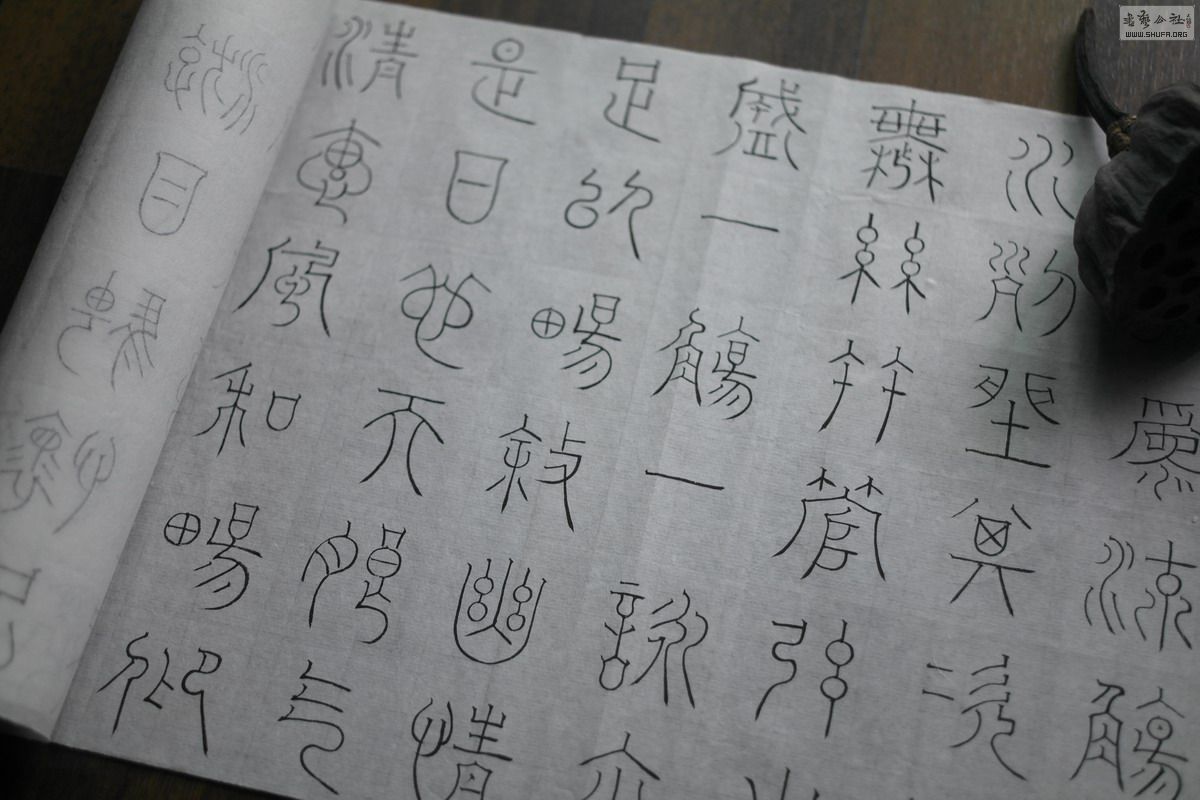 爲流觴
水列坐其次
無絲竹管弦
盛一觴一詠亦
足以暢敘幽情
是日也天朗气
清惠風和暢仰
遊目騁懷
書藝公社
WWW.SHUFA.ORG